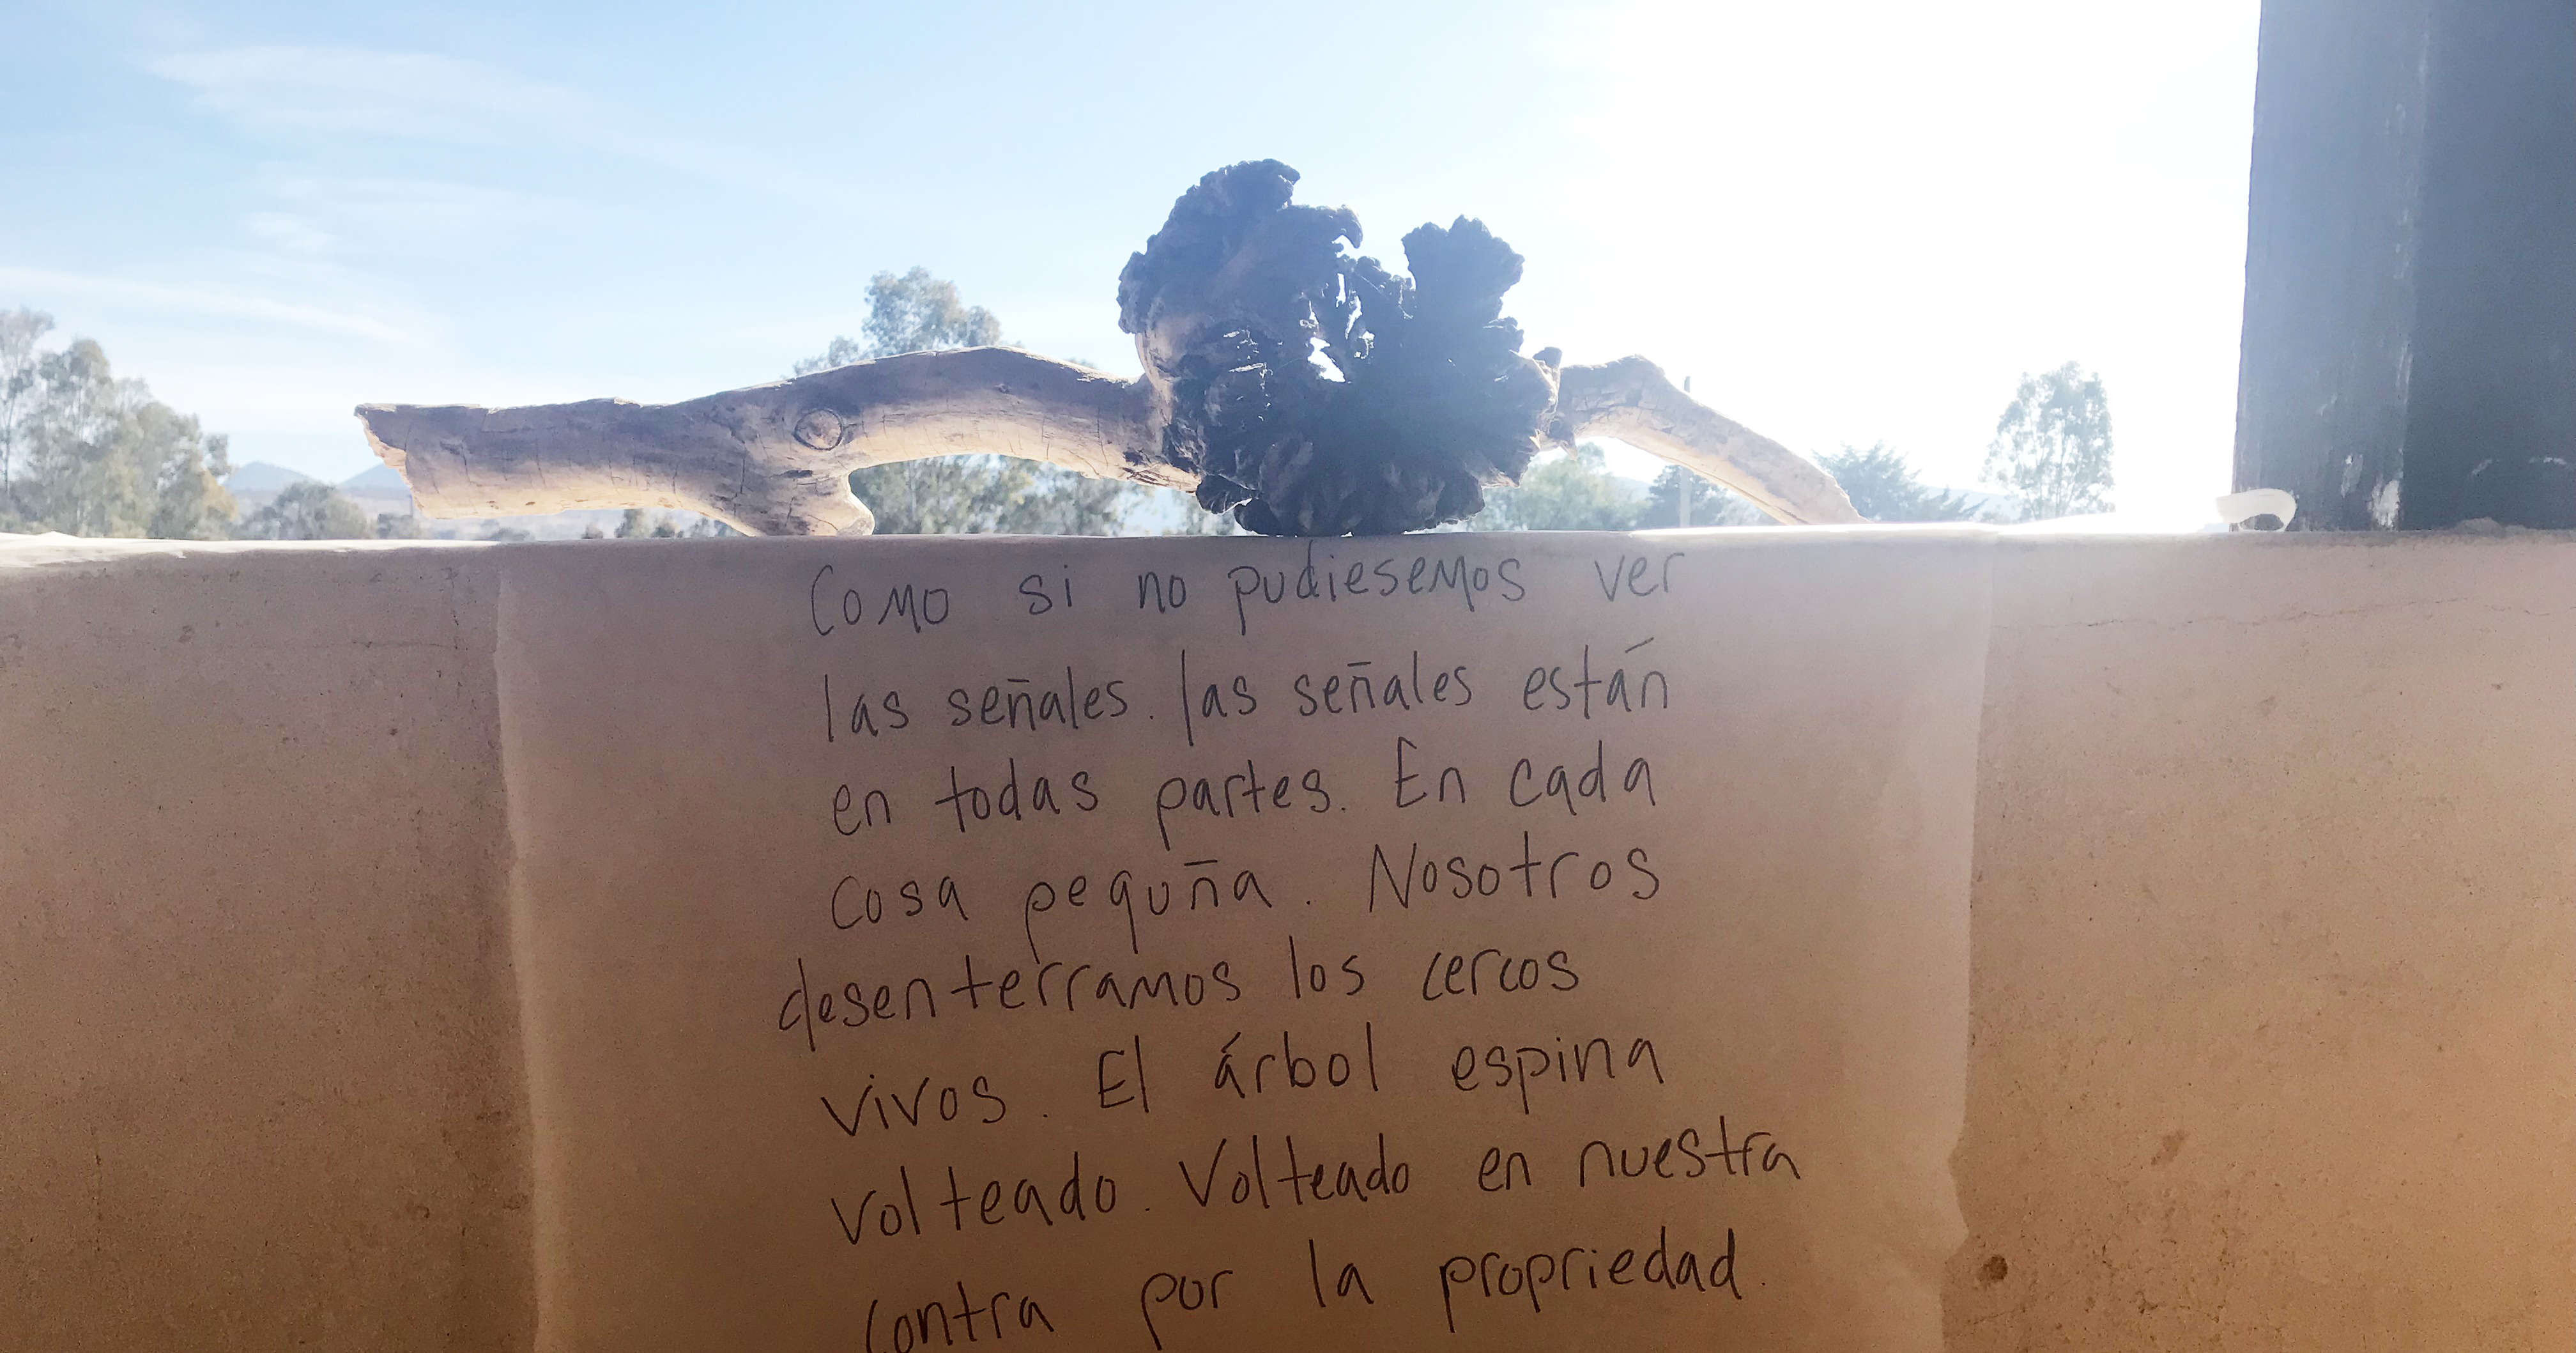 Como si no pudiesemos ver
las señales. las señales están
en todas partes. En cada
cosa pequña. Nosotros
desenterramos los cercos
vivos. El árbol espina
volteado. Volteado en nuestra
contra por la propriedad.